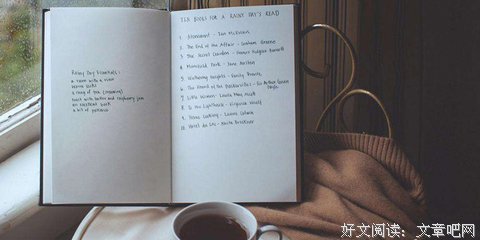 Rainy Day Essentials:
a room with a view
warm socks
a mug of tea (steaming)
toast with butter and raspberry jam
an excellent book
a bit of patience
TEN BOOKS FOR A RAINY DAY'S READ
1. Atonement - Ian McEwan
2. The End of the Affair - Graham Greene
3. The Secret Garden - Frances Hodgson Burnett
4. Mansfield Park - Jane Austen
5. Wuthering Heights - Emily Bronte
6. The Hound of the Baskervilles - Sir Arthur Conan
Doyle
7. Little Women - Louisa May Alcott
8. To the Lighthouse - Virginia Woolf
9. - Laurie Colwin
10. Hotel du Lac - Anita Brookner
好文阅读：文章吧网